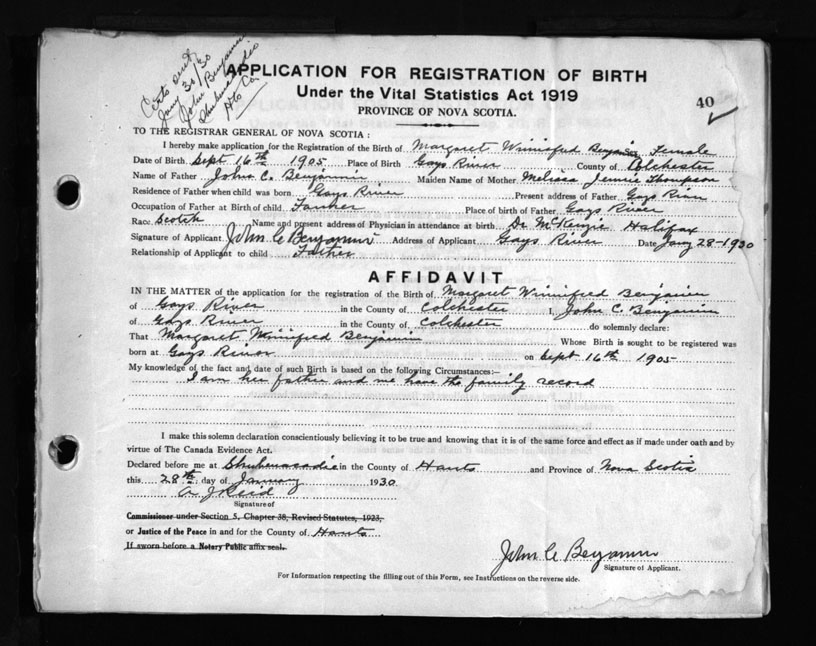 Certs sent
Jany 30/30
John Benjamin
Shubenacadie
Hts Co.
APPLICATION FOR REGISTRATION OF BIRTH
Under the Vital Statistics Act 1919
PROVINCE OF NOVA SCOTIA.
40
TO THE REGISTRAR GENERAL OF NOVA SCOTIA :
I hereby make application for the Registration of the Birth of Margaret Winnifred Benjamin Female
Date of Birth Sept 16th 1905 Place of Birth Gays River County of Colchester
Name of Father John C. Benjamin Maiden Name of Mother Melissa Jennie Thompson
Residence of Father when child was born Gays River Present address of Father Gays River
Occupation of Father at Birth of child Farmer Place of birth of Father Gays River
Race Scotch Name and present address of Physician in attendance at birth Dr McKenzie Halifax
Signature of Applicant John C Benjamin Address of Applicant Gays River Date Jany 28-1930
Relationship of Applicant to child Father
AFFIDAVIT
IN THE MATTER of the application for the registration of the Birth of Margaret Winnifred Benjamin
of Gays River in the County of Colchester I, John C. Benjamin
of Gays River in the County of Colchester do solemnly declare:
That Margaret Winnifred Benjamin Whose Birth is sought to be registered was
born at Gays River on Sept 16th 1905
My knowledge of the fact and date of such Birth is based on the following Circumstances:—
I am her father and me have the family record
I make this solemn declaration conscientiously believing it to be true and knowing that it is of the same force and effect as if made under oath and by
virtue of The Canada Evidence Act.
Declared before me at Shubenacadie in the County of Hants and Province of Nova Scotia
this 28th day of January 1930
A J Reid
Signature of
Commissioner under Section 5, Chapter 38, Revised Statutes, 1923,
or Justice of the Peace in and for the County of Hants
If sworn before a Notary Public affix seal.
John C Benjamin
Signature of Applicant.
For Information respecting the filling out of this Form, see Instructions on the reverse side.